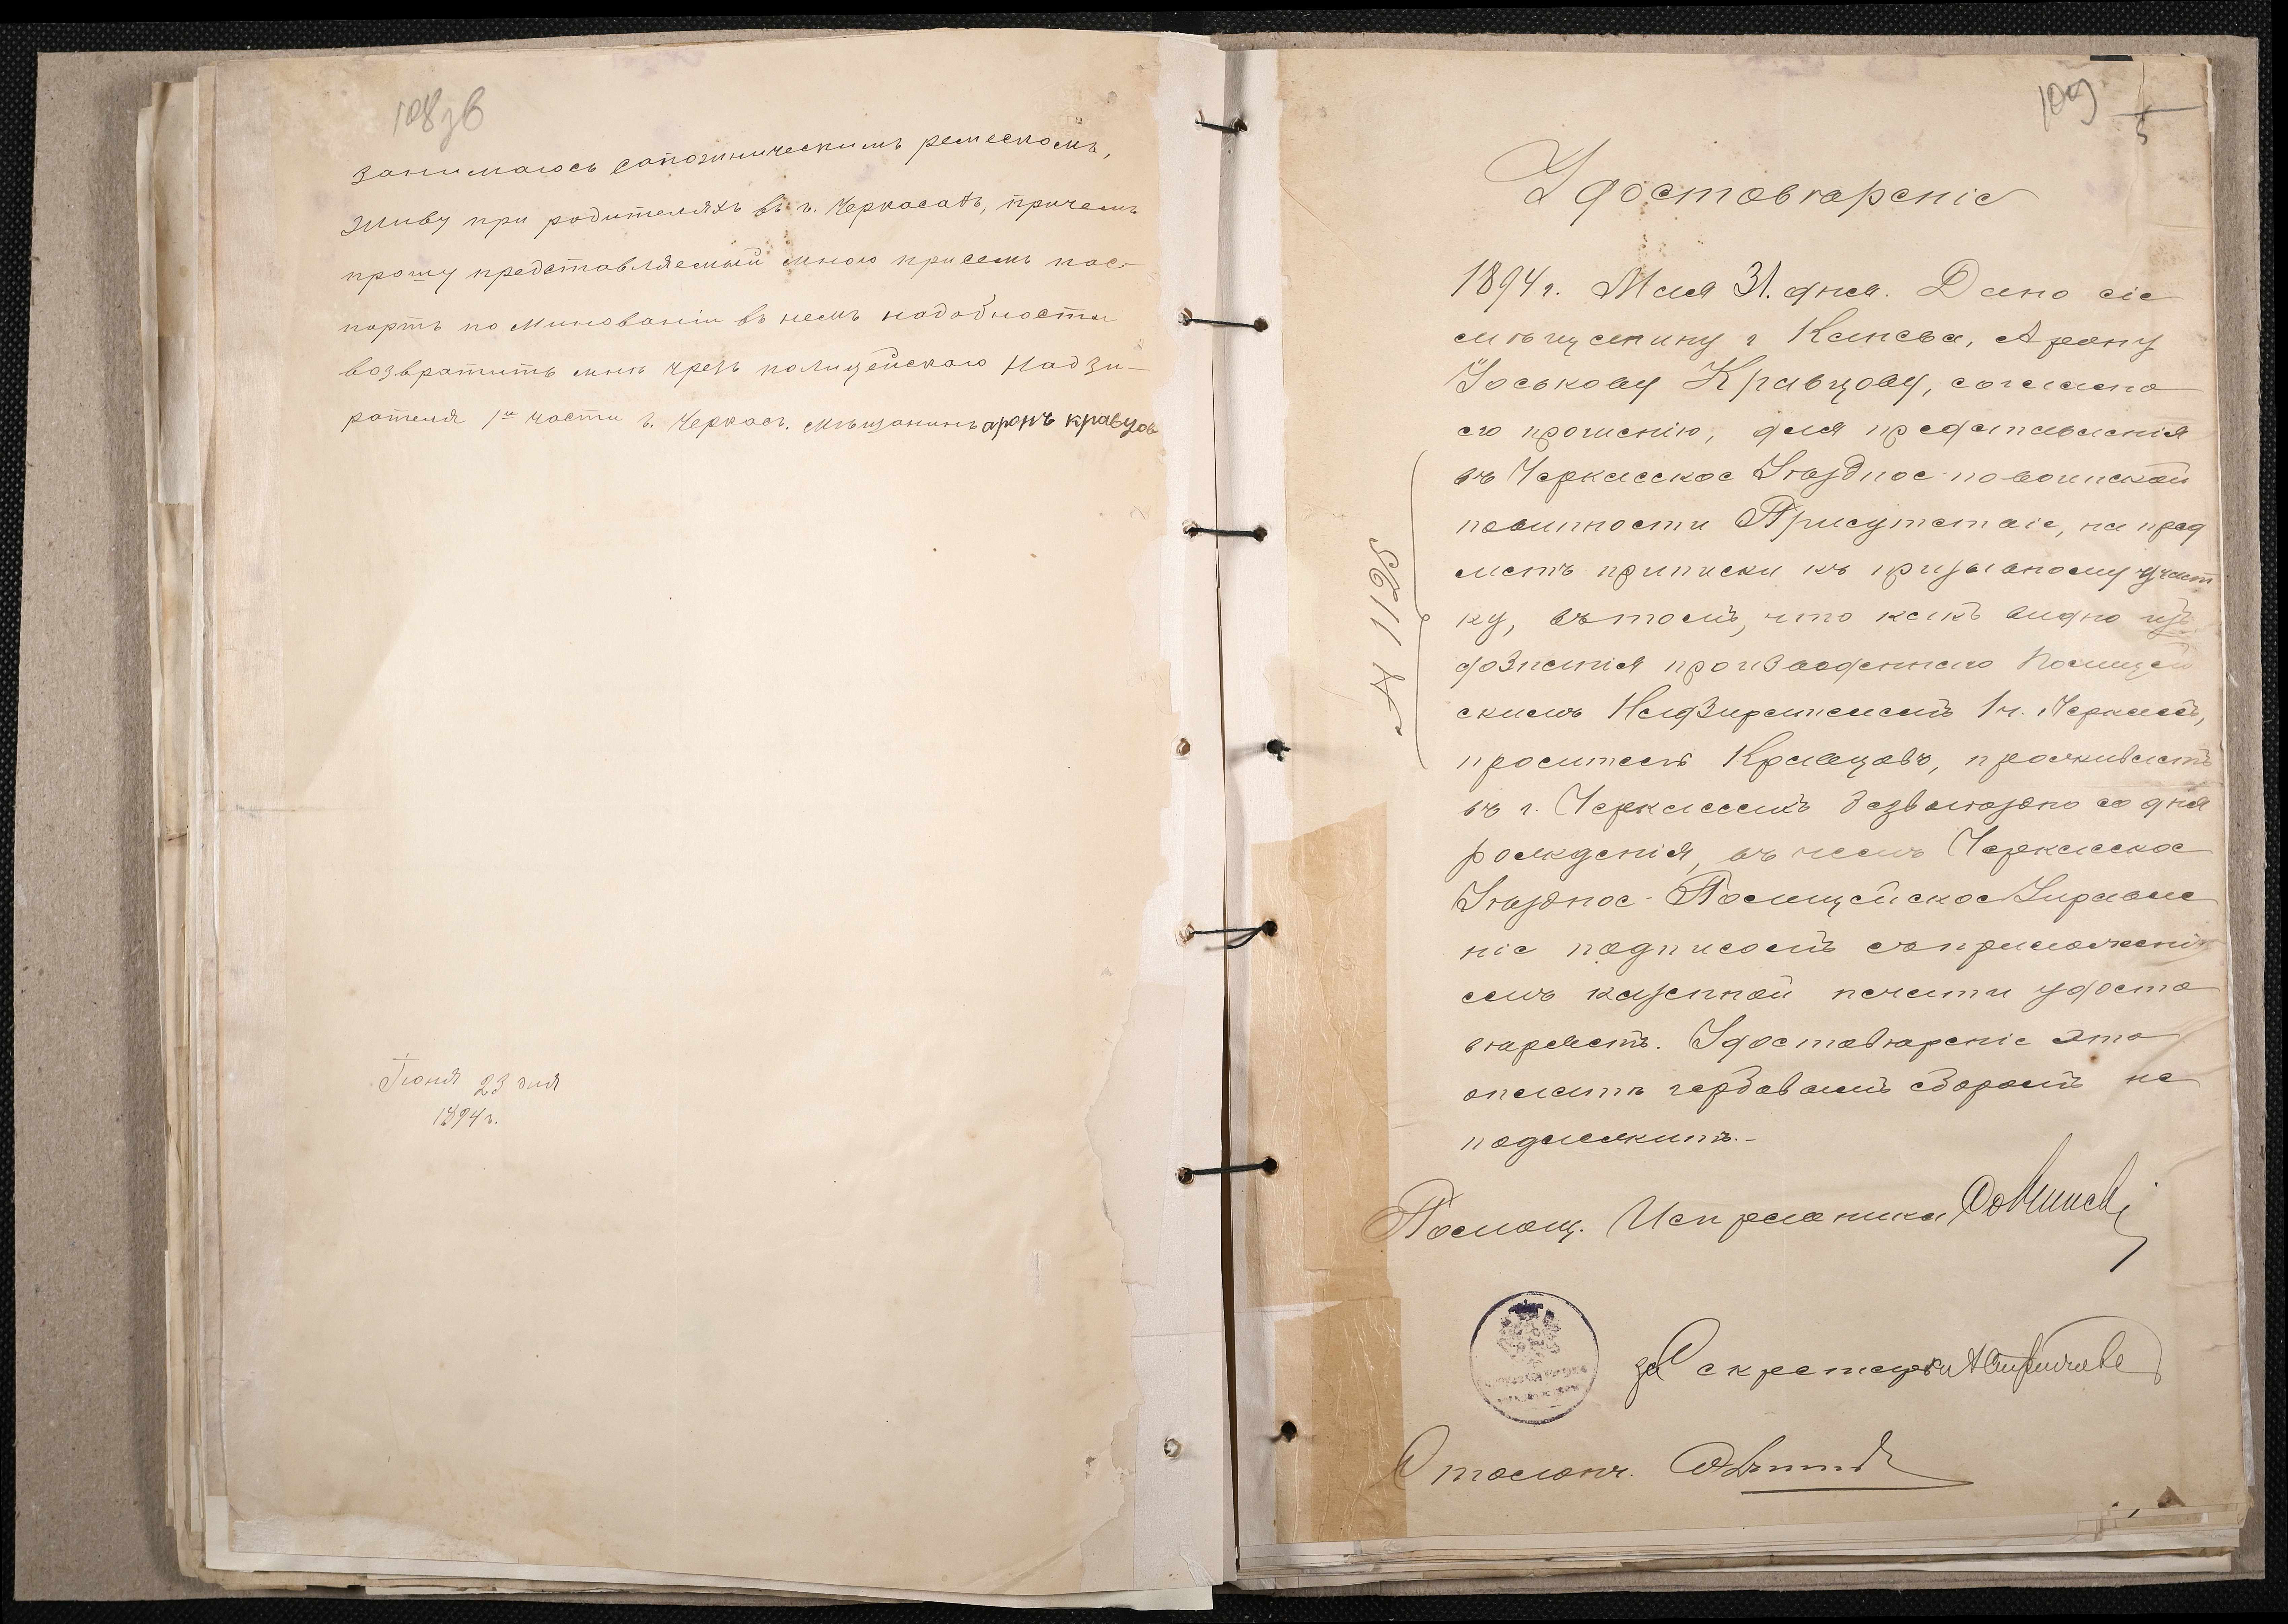 108зв
занимаюсь сапожническимъ ремесломъ,
живу при родителяхъ въ г. Черкасахъ, причемъ
прошу представляемый мною присемъ пас-
портъ по миновании въ немъ надобности
возвратить мнѣ чрезъ полицейскаго Надзи-
рателя 1й части г. Черкасъ. мѣщанинъ аронъ кравцов
Іюня 23 дня
1894 г.
109
5
Удостовѣреніе
1894 г. Мая 31. дня. Дано сіе
мѣщанину г Канева, Арону
Йоськову Кравцову, согласно
его прошенію, для представленія
въ Черкасское Уѣздное по воинской
повинности Присутствіе, на пред
метъ приписки къ призывному участ
ку, въ томъ, что какъ видно изъ
дознанія произведеннаго Полицей
скимъ Надзирателемъ 1 ч. Черкасъ,
проситель Кравцовъ, проживаетъ
въ г. Черкассахъ безвыѣздно со дня
рожденія, въ чемъ Черкасское
Уѣздное Полицейское Управле
ніе подписомъ съ приложені
емъ казенной печати удосто
вѣряетъ. Удостовѣреніе это
оплатѣ гербовымъ сборомъ не
подлежитъ.-
№ 1125
Помощ. Исправника
за Секретаря
Столонач.